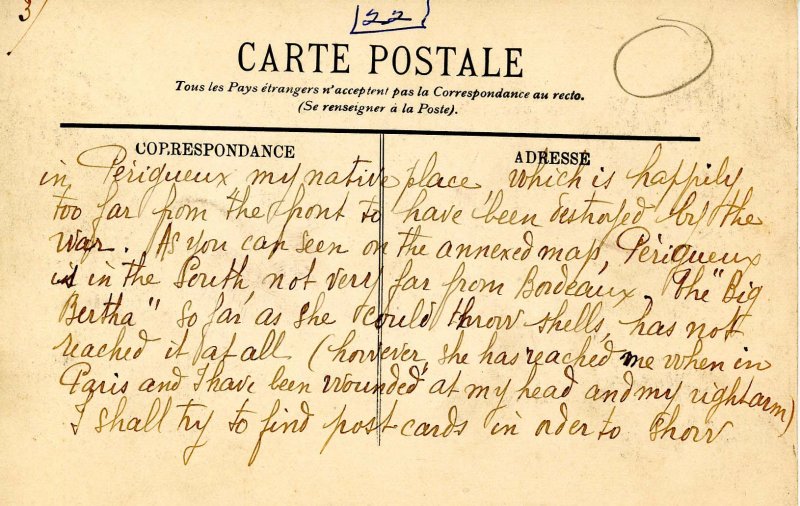 3
22
CARTE POSTALE
Tous les Pays étrangers n'acceptent pas la Correspondance au recto.
(Se renseigner à la Poste).
CORRESPONDANCE
ADRESSE
in Périgueux my native place which is happily
too far from the front to have been destroyed by the
war. As you can seen on the annexed map, Périgueux
is in the South, not very far from Bordeaux. The "Big
Bertha" so far as she could throw shells, has not
reached it at all (however, she has reached me when in
Paris and I have been wounded at my head and my right arm)
I shall try to find post cards in order to show